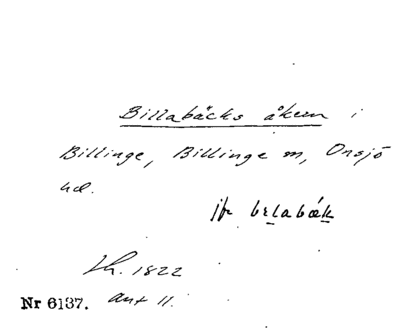 Billabäcks åkern i
Billinge, Billinge sn, Onsjö
hd.
jfr belabæk
Lh. 1822
Nr 6137. ant 11.